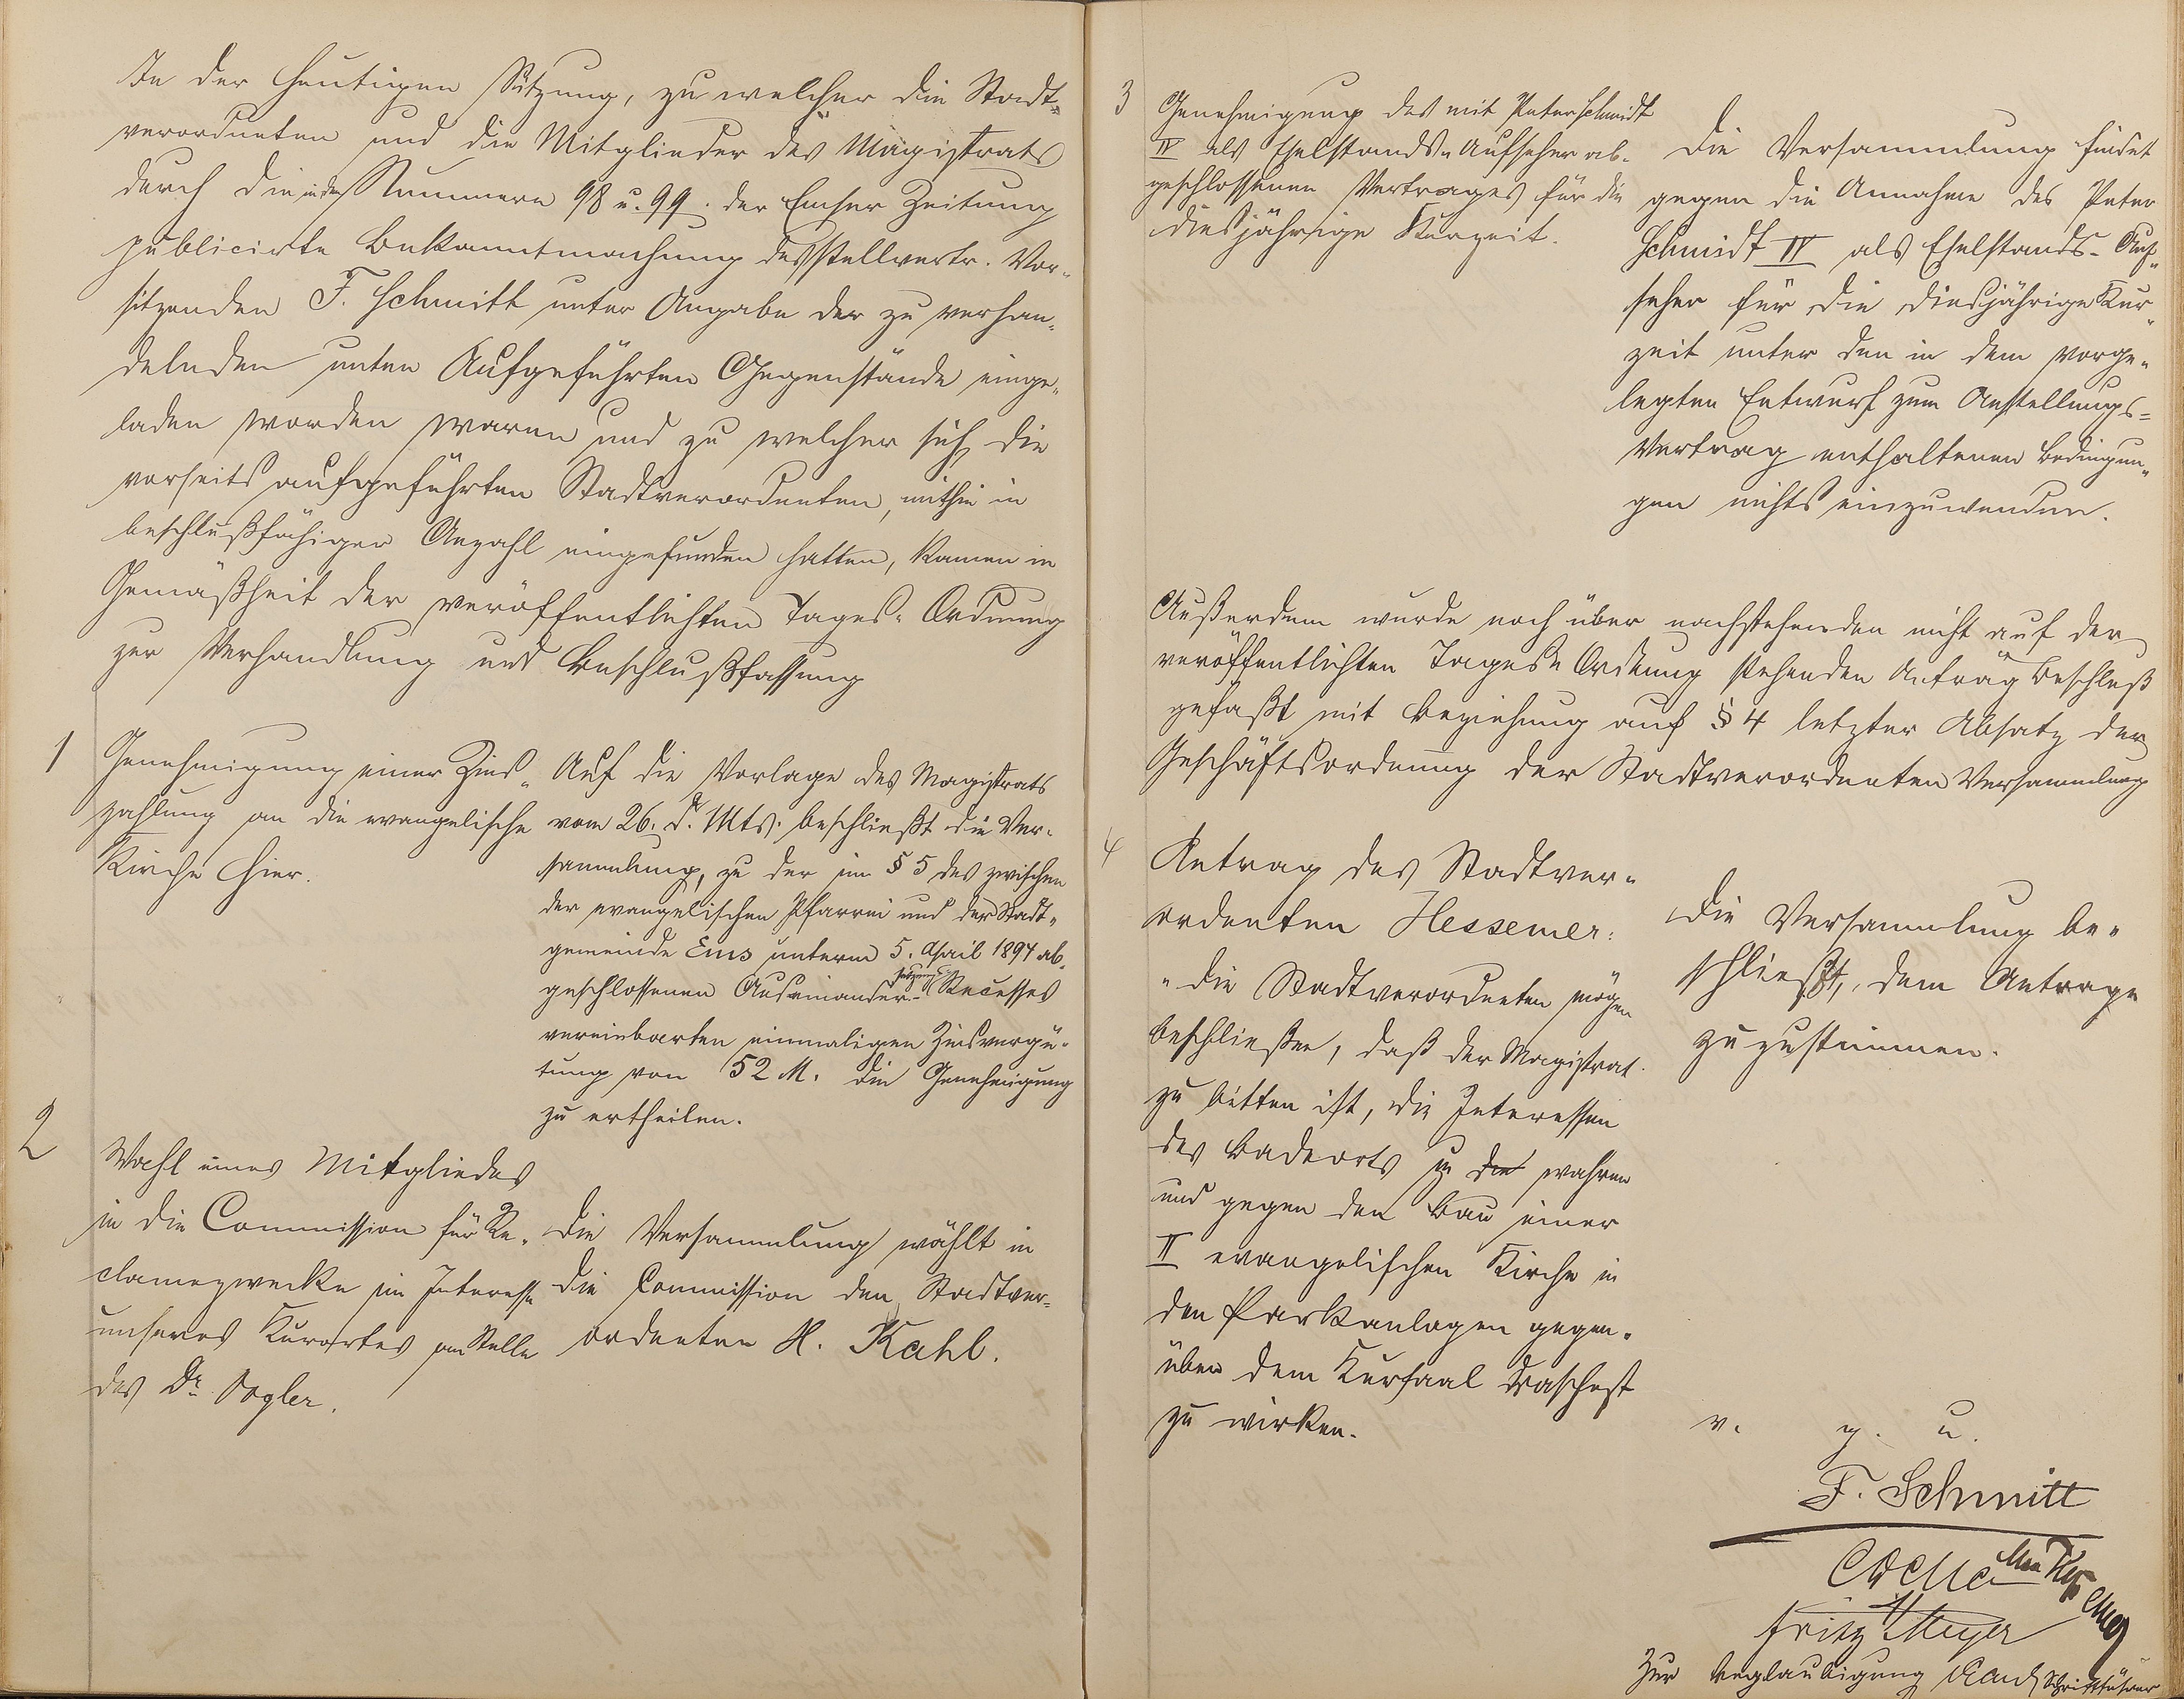 In der heutigen Sitzung, zu welcher die Stadt-
verordneten und die Mitglieder des Magistrats
durch die in den Nummern 98 u. 99. der Emser Zeitung
publicirte Bekanntmachung des stellvertr. Vor-
sitzenden F. Schmitt unter Angabe der zu verhan-
delnden unten Aufgeführten Gegenstände einge-
laden worden waren und zu welcher sich die
vorseits aufgeführten Stadtverordneten, mithin in
beschlußfähiger Anzahl eingefunden hatten, kamen in
Gemäßheit der veröffentlichten Tages-Ordnung
zur Verhandlung und Beschlußfassung
1 Genehmigung einer Zins-
zahlung an die evangelische
Kirche hier.
Auf die Vorlage des Magistrats
vom 26. d. Mts. beschließt die Ver-
sammlung, zu der im § 5 des zwischen
der evangelischen Pfarrei und der Stadt-
gemeinde Ems unterm 5. April 1894 ab-
geschlossenen Auseinandersetzungs-Recesses
vereinbarten einmaligen Zinsvergü-
tung von 52 M. die Genehmigung
zu ertheilen.
2 Wahl eines Mitgliedes
in die Commission für Re-
clamezwecke im Interesse
unseres Kurortes an Stelle
des Dr. Vogler.
Die Versammlung wählt in
die Commission den Stadtver-
ordneten H. Kahl.
3 Genehmigung des mit Peter Schmidt
IV als Eselstands-Aufseher ab-
geschlossenen Vertrages für die
diesjährige Kurzeit.
Die Versammlung findet
gegen die Annahme des Peter
Schmidt IV als Eselstands-Auf-
seher für die diesjährige Kur-
zeit unter den in dem vorge-
legten Entwurf zum Anstellungs-
Vertrag enthaltenen Bedingun-
gen nichts einzuwenden.
Außerdem wurde noch über nachstehenden nicht auf der
veröffentlichten Tages-Ordnung stehenden Antrag Beschluß
gefaßt mit Beziehung auf § 4 letzter Absatz der
Geschäftsordnung der Stadtverordneten Versammlung
4 Antrag des Stadtver-
ordneten Hessemer:
"Die Stadtverordneten mögen
beschließen, daß der Magistrat
zu bitten ist, die Interessen
des Badeorts zu die wahren
und gegen den Bau einer
II evangelischen Kirche in
den Parkanlagen gegen-
über dem Kursaal
zu wirken.
Die Versammlung be-
schließt, dem Antrage
zuzustimmen.
v. g. u.
F. Schmitt
Fritz Meyer
Zur Beglaubigung Schriftführer